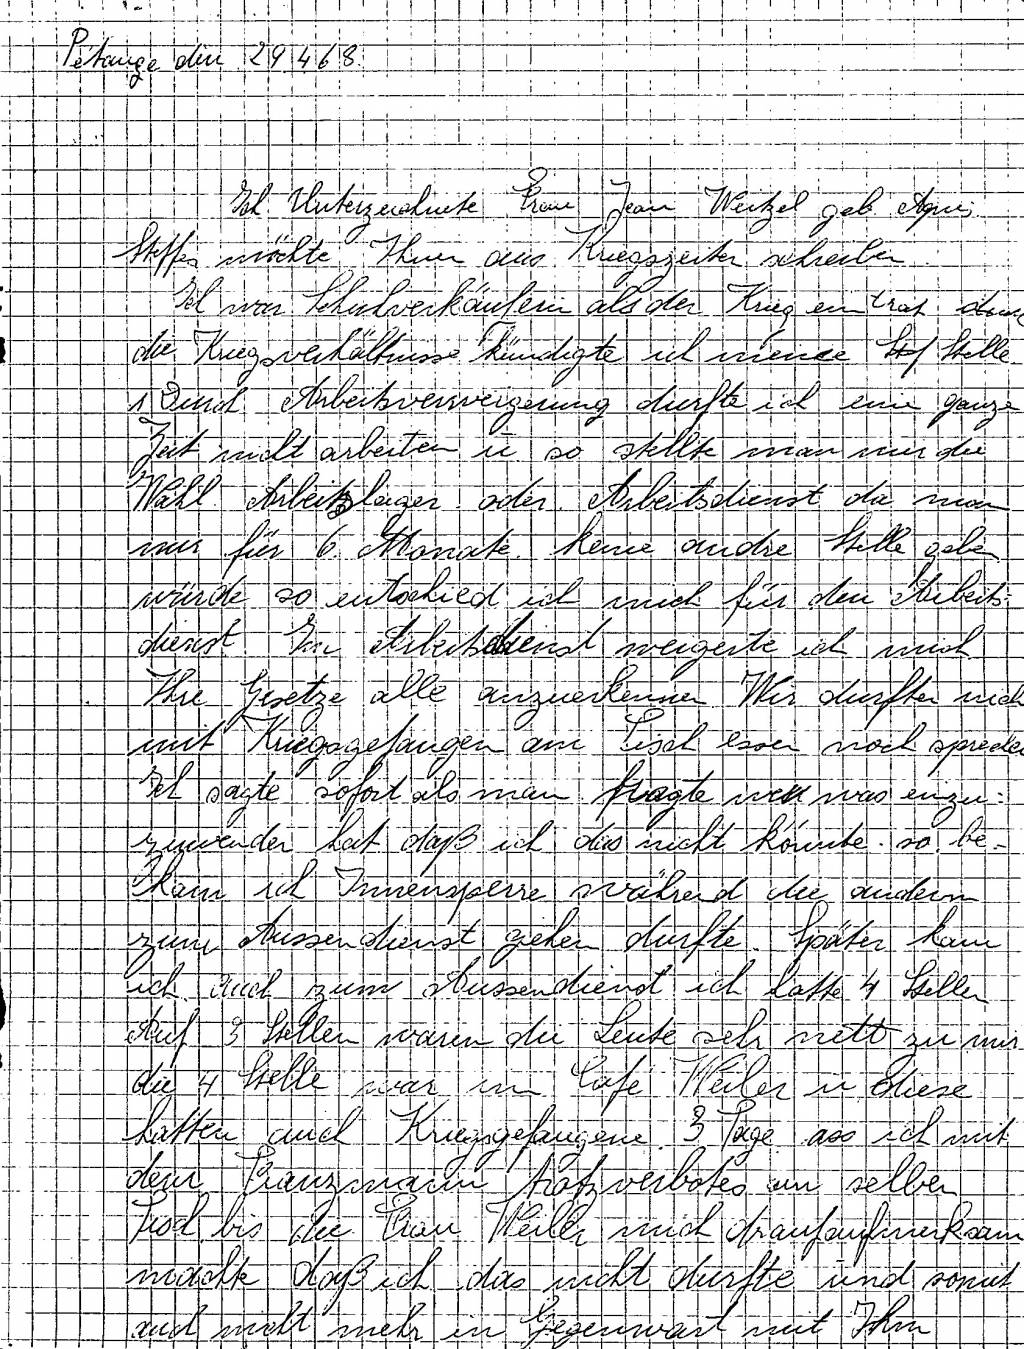 Pétange den 29 4 68
Ich Unterzeichnete Frau Jean Weitzel geb Agnes
Steffes möchte Ihnen aus Kriegszeiten schreiben
Ich war Schuhverkäuferin als der Krieg ein trat durch
die Kriegsverhältnisse kündigte ich meine Stelle
Durch Arbeitsverweigerung durfte ich eine ganze
Zeit nicht arbeiten u so stellte man mir die
Wahl Arbeitslager oder Arbeitsdienst da man
mir für 6 Monate keine andre Stelle geben
würde so entschied ich mich für den Arbeits-
dienst Im Arbeitsdienst weigerte ich mich
Ihre Gesetze alle anzuerkennen Wir durften nich
mit Kriegsgefangen am Tisch essen noch sprechen
Ich sagte sofort als man fragte wer was einzu-
zuwenden hat daß ich das nicht könnte. so be-
kam ich Innensperre während die andern
zum Aussendienst gehen durfte. Später kam
ich auch zum Aussendienst ich hatte 4 Stellen
Auf 3 Stellen waren die Leute sehr nett zu mir
die 4 Stelle war im Café Weiler u diese
hatten auch Kriegsgefangene 3 Tage ass ich mit
dem Franzmann trotz verbotes am selben
Tisch bis die Frau Weiler mich draufaufmerksam
machte daß ich das nicht durfte und somit
auch nicht mehr in Gegenwart mit Ihm